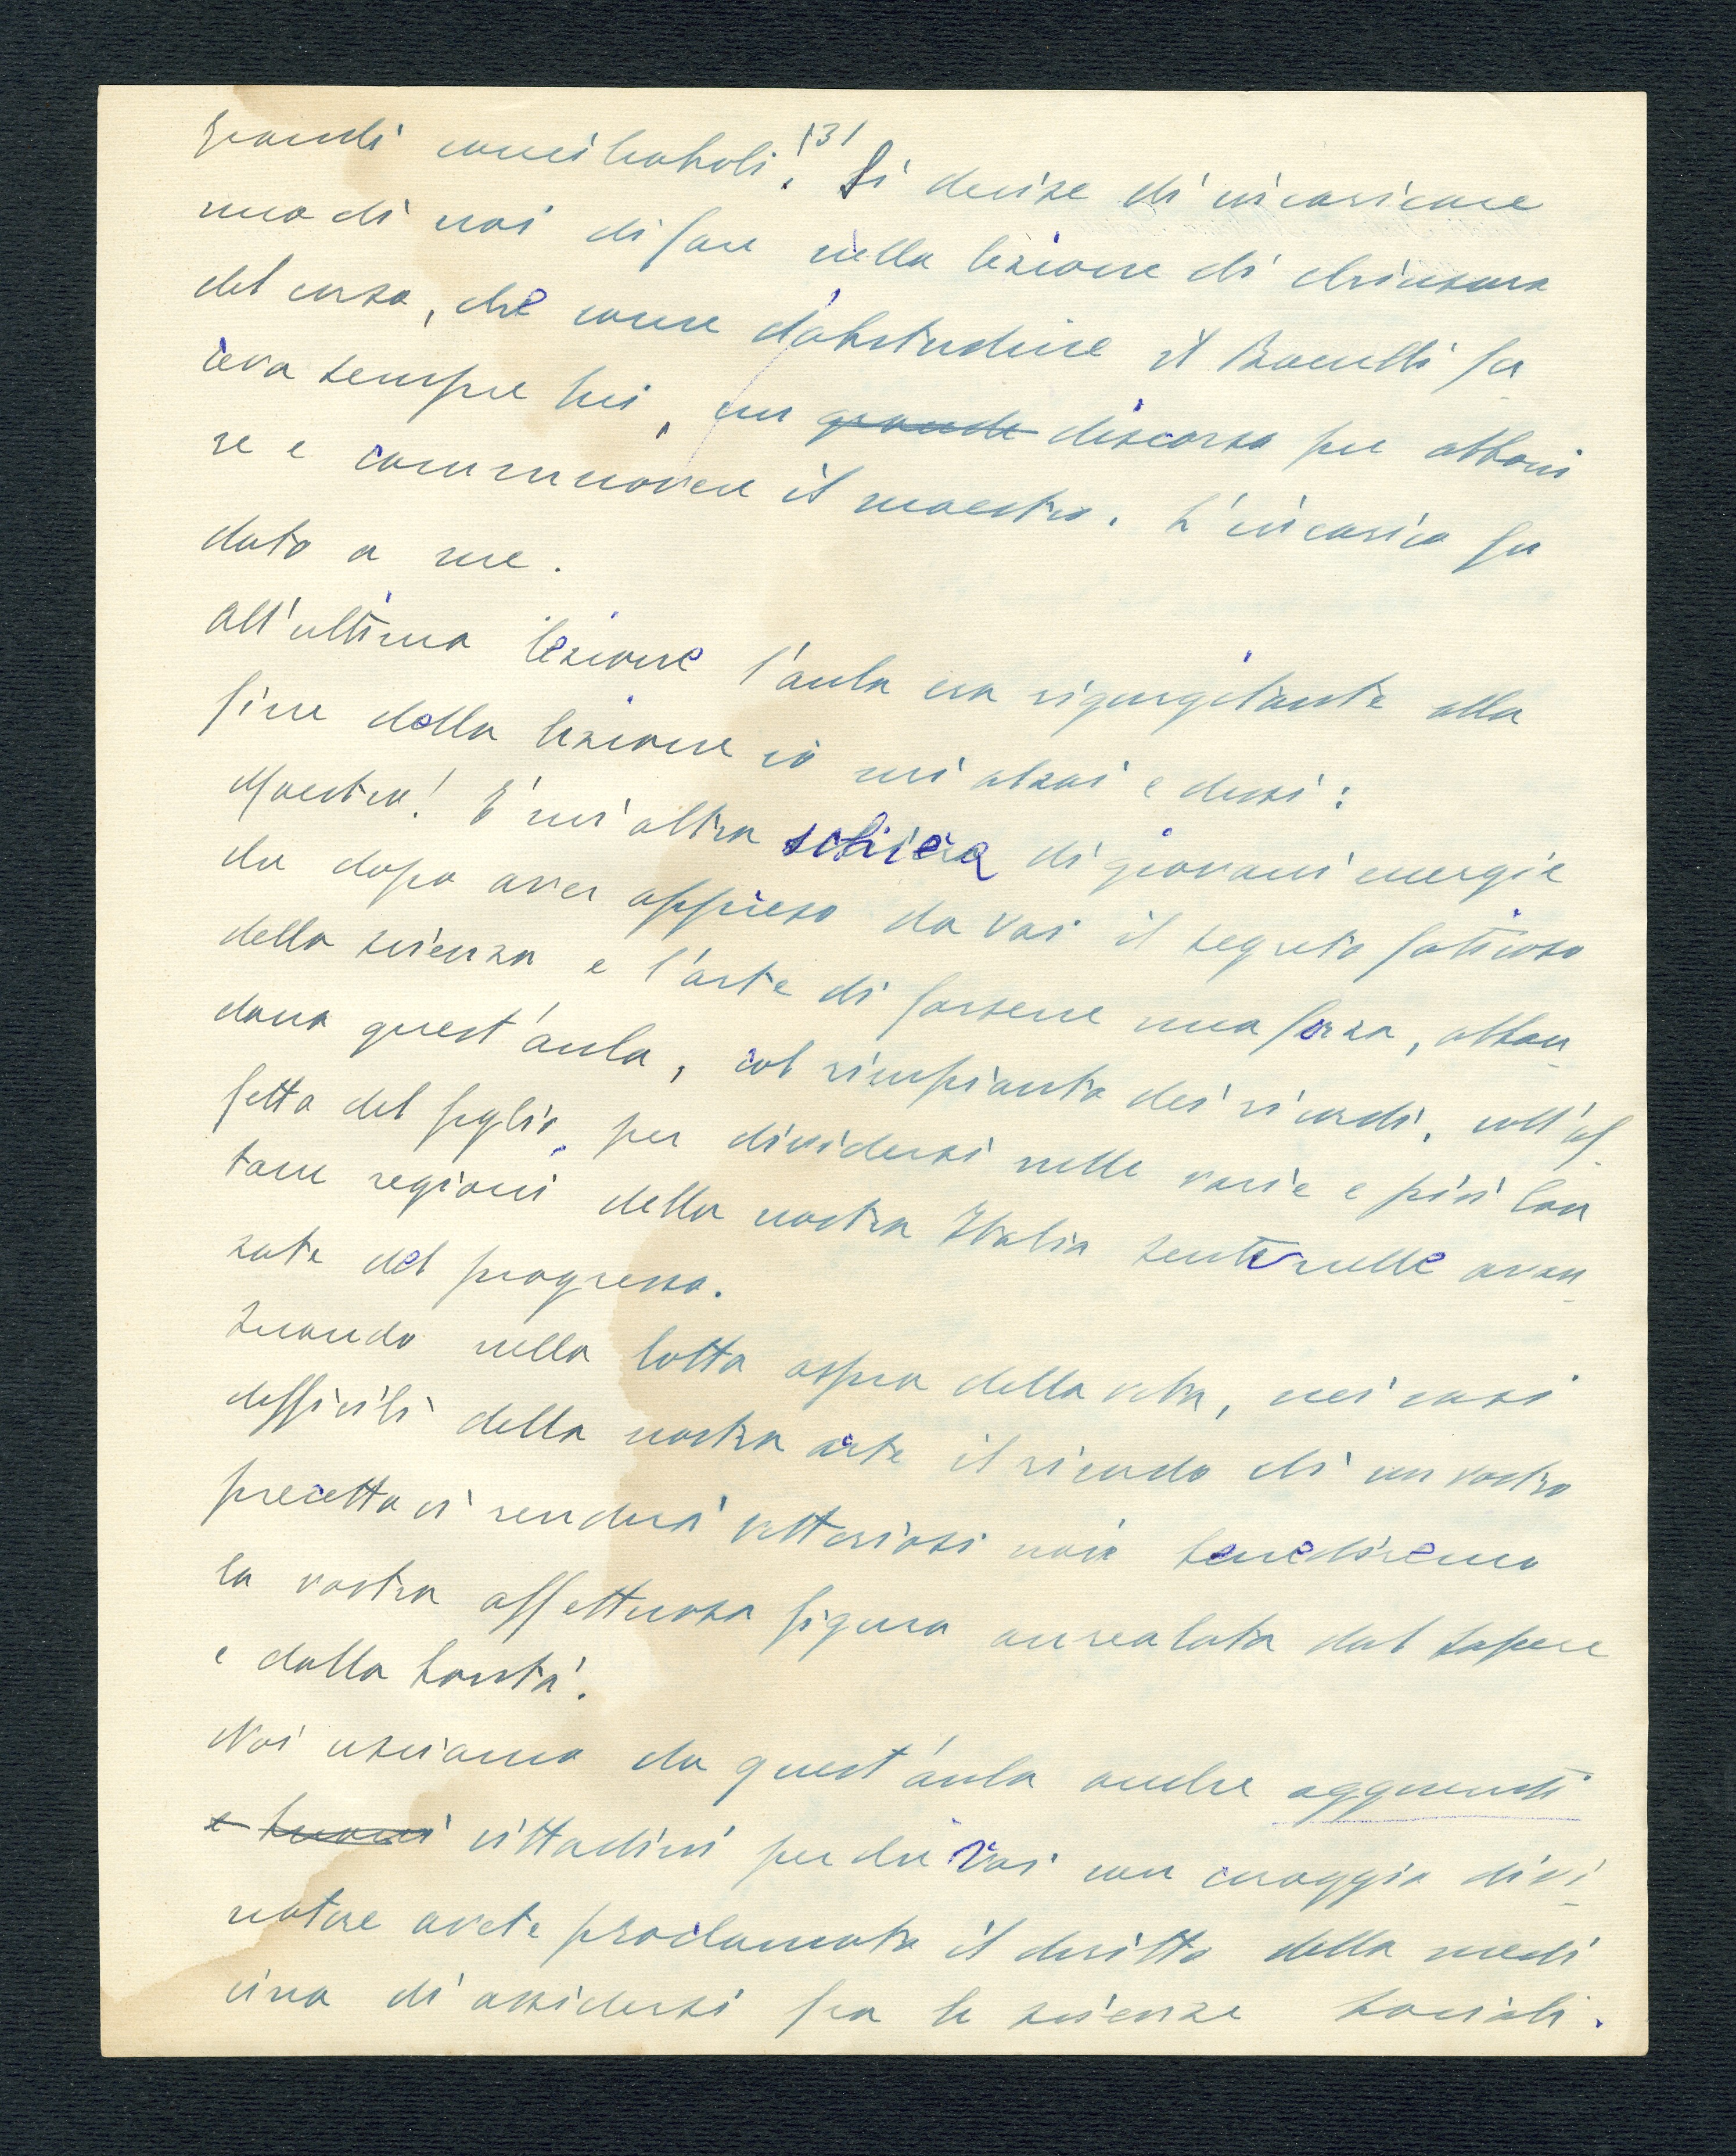 grandi conciliaboli! (3) Si decise di incaricare
uno di noi di fare nella lezione di chiusura
del corso, che come d'abitudine il Baccelli fa
ceva sempre lui, un grande discorso per abboni
re e commuovere il maestro. L'incarico fu
dato a me.
All'ultima lezione l'aula era rigurgitante alla
fine della lezione io mi alzai e dissi:
Maestro! E' un'altra schiera di giovani energie
che dopo aver appreso da voi il segreto faticoso
della scienza e l'arte di farsene una forza, abban
dona quest'aula, col rimpianto dei ricordi, coll'af
fetto del figlio, per dividersi nelle varie e più lon
tane regioni della nostra Italia sentinelle avan
zate del progresso.
Quando nella lotta aspra della vita, nei casi
difficili della nostra arte il ricordo di un vostro
precetto ci renderà vittoriosi noi benediremo
la vostra affettuosa figura aureolata dal sapere
e dalla bontà!
Noi usciamo da quest'aula anche agguerriti
e buoni cittadini perchè Voi con coraggio divi
natore avete proclamato il diritto della medi
cina di assidersi fra le scienze sociali.